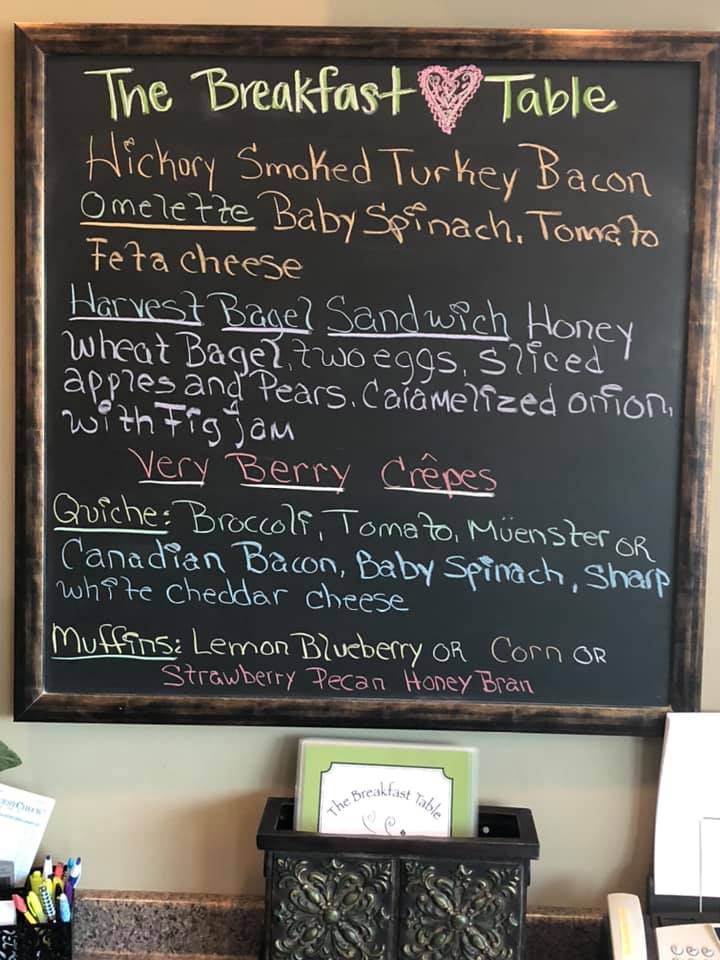 The Breakfast Table
Hickory Smoked Turkey Bacon
Omelette Baby Spinach, Tomato
Feta cheese
Harvest Bagel Sandwich Honey
Wheat Bagel, two eggs, sliced
apples and Pears. Caramelized onion,
with Fig jam
Very Berry Crêpes
Quiche: Broccoli, Tomato, Müenster OR
Canadian Bacon, Baby Spinach, Sharp
white cheddar cheese
Muffins: Lemon Blueberry OR Corn OR
Strawberry Pecan Honey Bran
The Breakfast Table